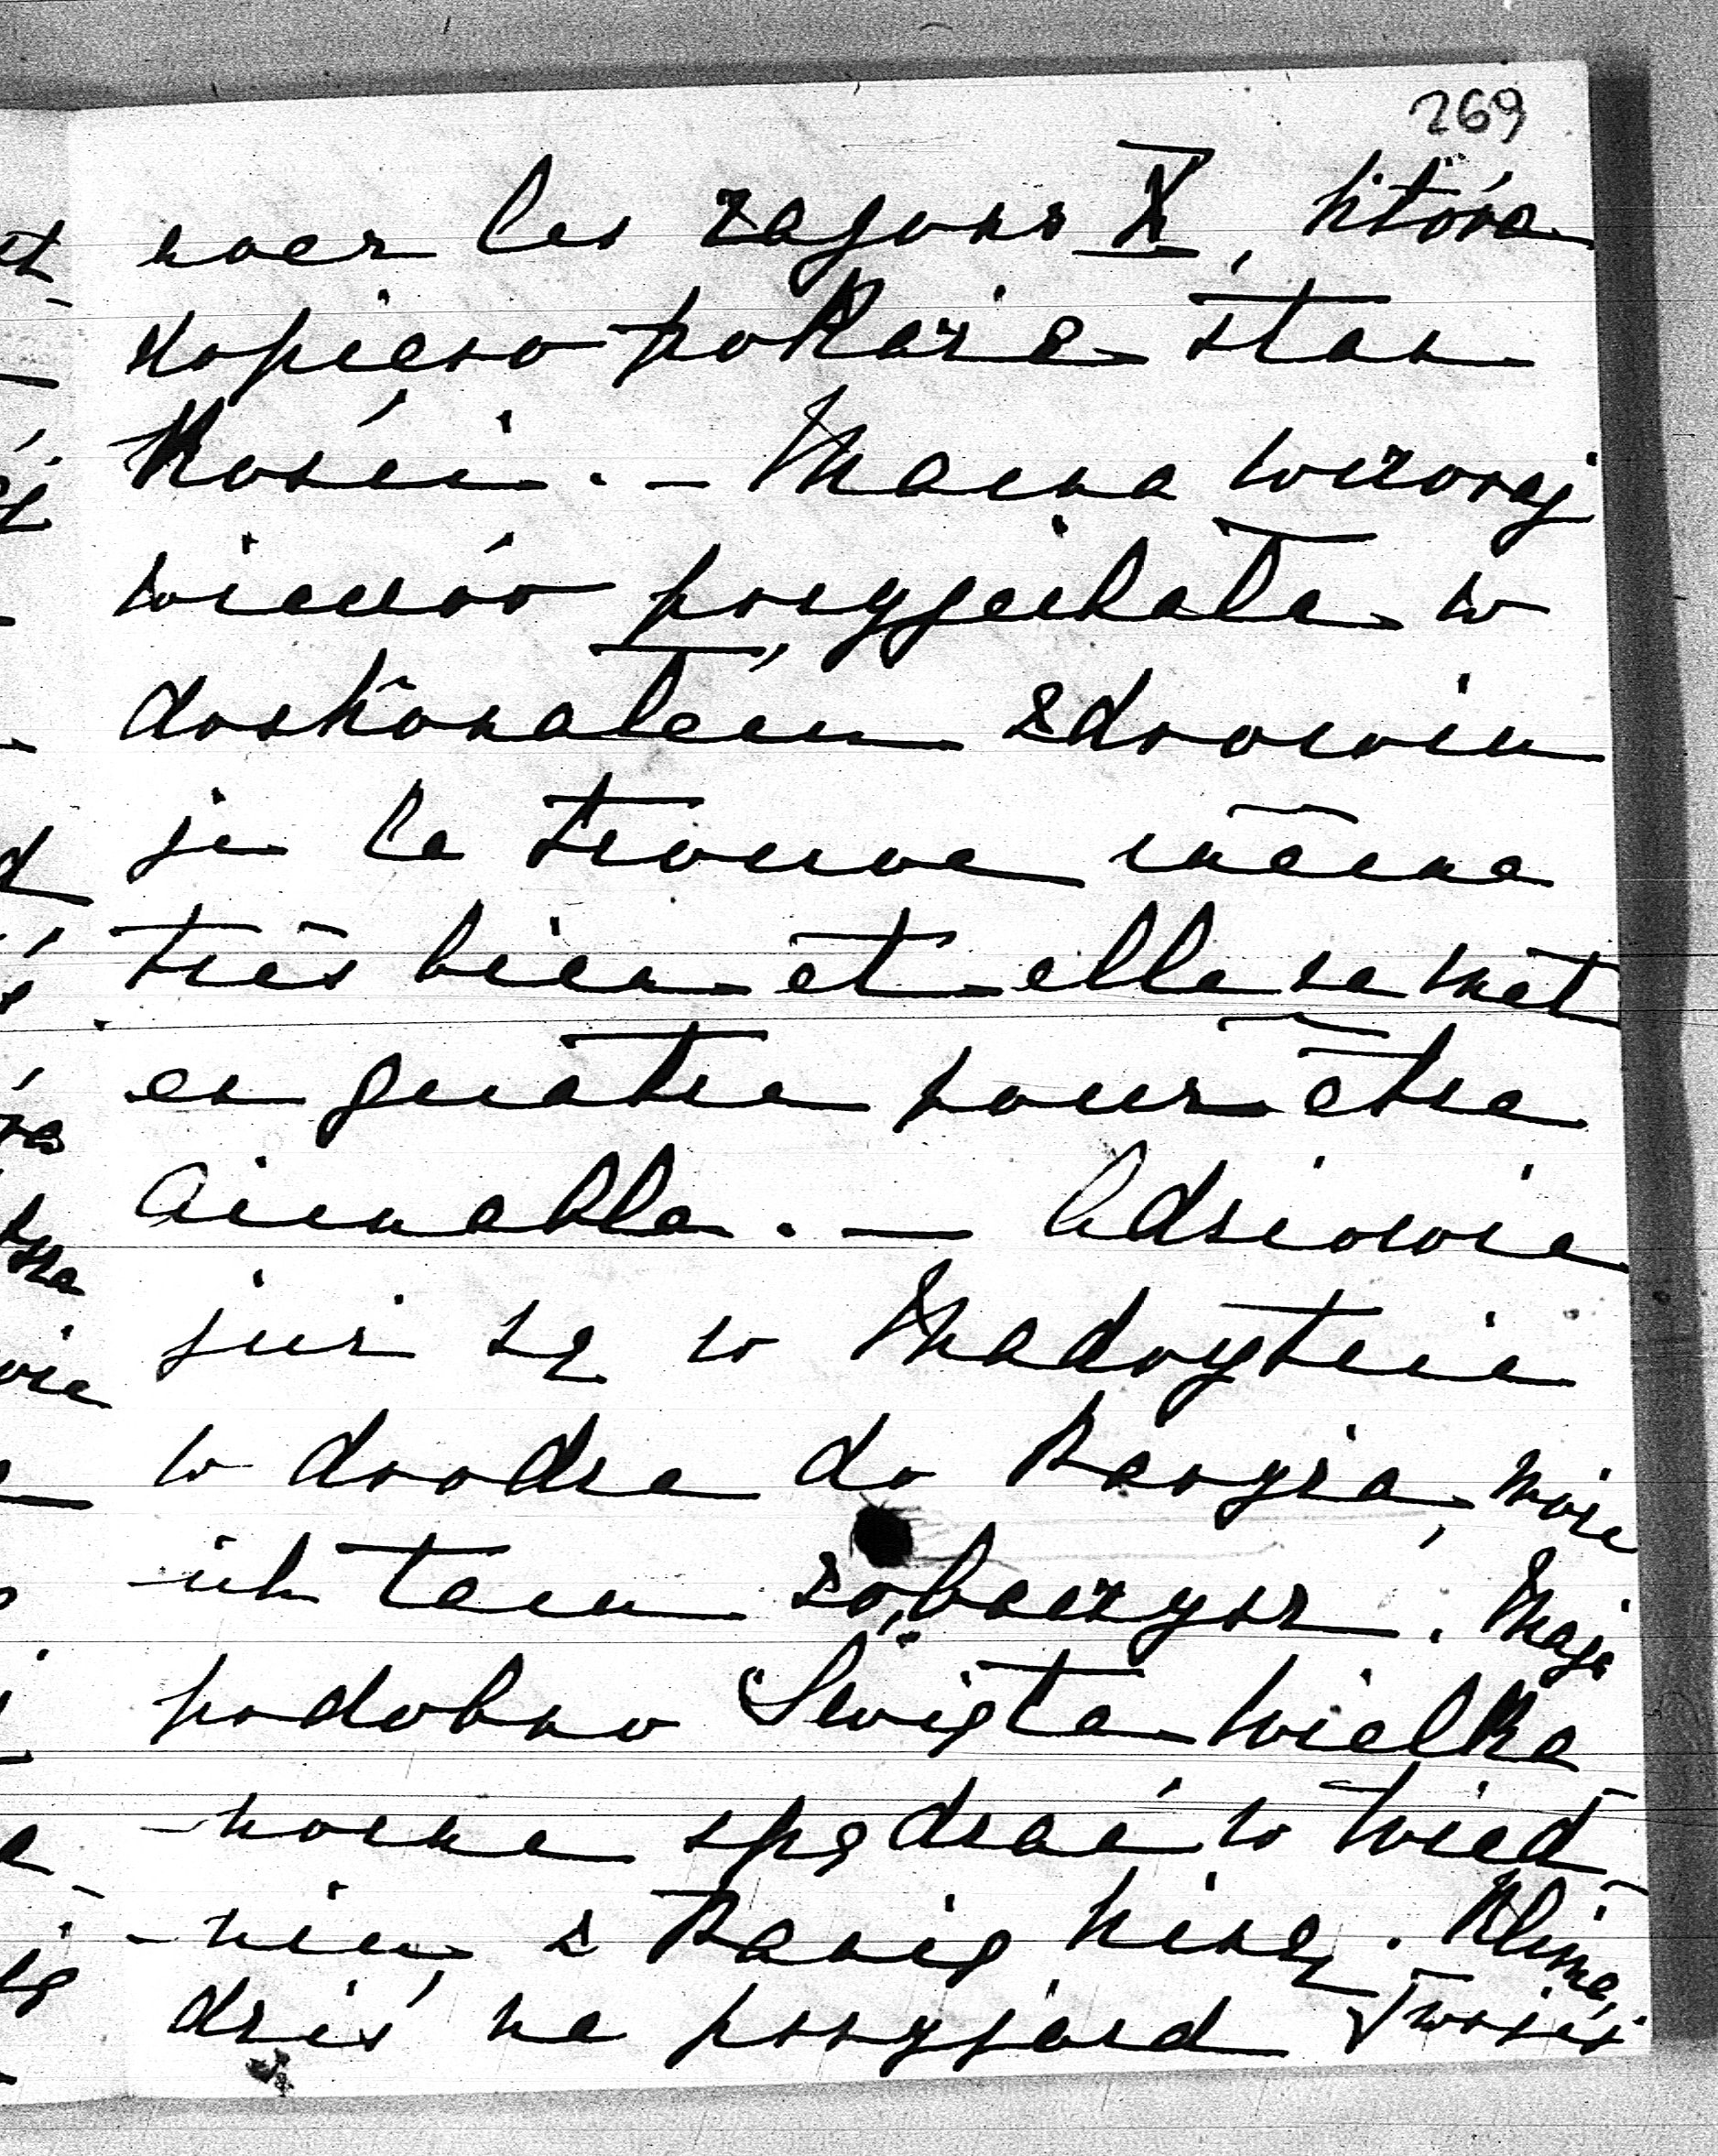 269
nocz les rayons X, która
dopiero pokarze stan
kości. — Mama wczoraj
wieczór przyjechała w
doskonałem zdrowiu
je la trouve même
très bien et elle se met
en quatre pour être
aimable. — Adziowie
już są w Madrycie
w drodze do Paryża, może
ich tam zobaczysz. Mają
podobno Święta Wielka
-nocne spędzać w Wied
-niu, z Panią Kinę. Klima,
dziś na przyjazd Twojéj